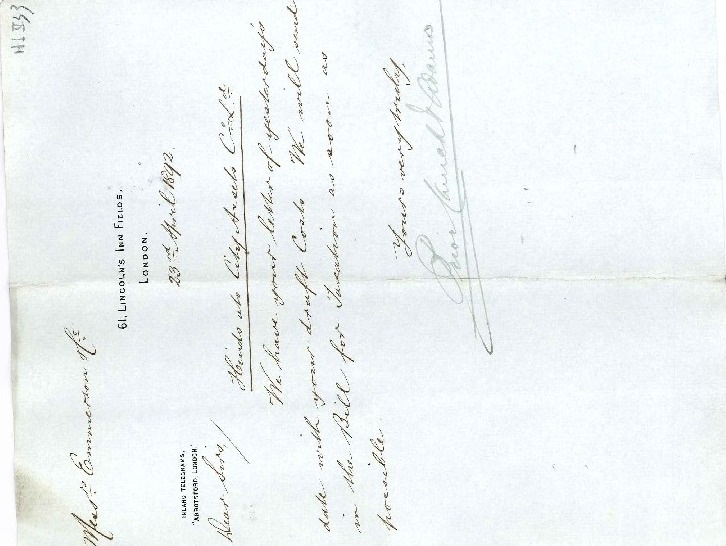 61, LINCOLN'S INN FIELDS,
LONDON.
23rd April 1892
INLAND TELEGRAMS,
"ABBOTSFORD, LONDON."
Dear Sirs/
Hinds ats City Assets Co. Ld.
We have your letter of yesterday's
date with your draft Costs. We will send
in the Bill for Taxation as soon as
possible.
Yours very truly,
Prior Church & Adams
Messrs. Emmerson & Co.